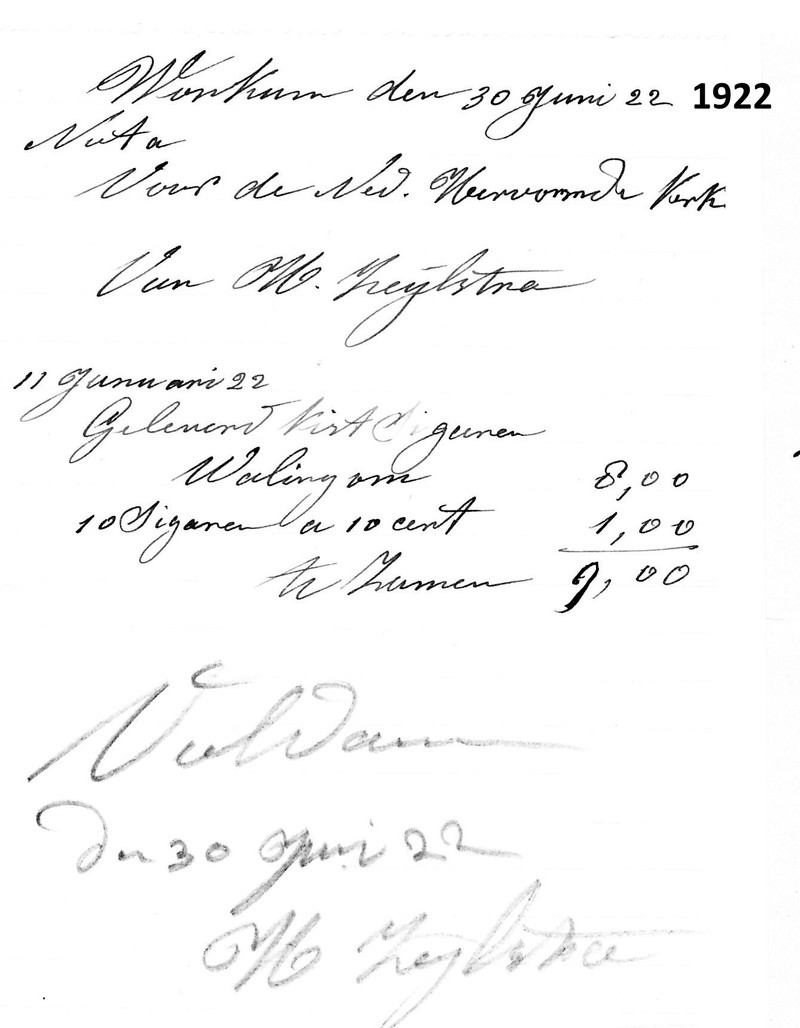 Workum den 30 Juni 22 1922
Nota
Voor de Ned. Heervormde Kerk
Van H. Zeijlstra
11 Januari 22
Geleverd Kist Sigaren
Walingom 8,00
10 Sigaren a 10 cent 1,00
te Zamen 9,00
Voldaan
den 30 Juni 22
H Zeijlstra